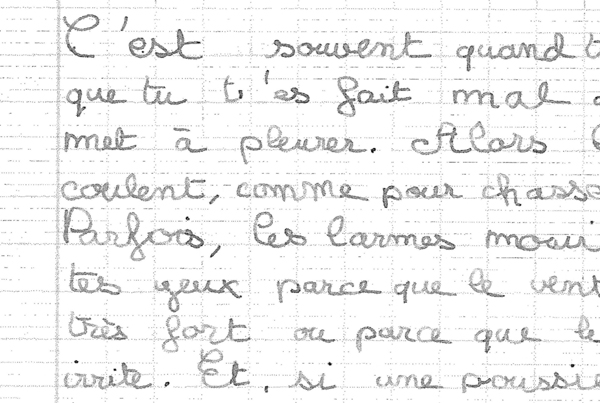 C'est souvent quand t
que tu t'es fait mal
met à pleurer. Alors l
coulent, comme pour chasse
Parfois, les larmes moui
tes yeux parce que le vent
très fort ou parce que le
irrite. Et, si une poussiè